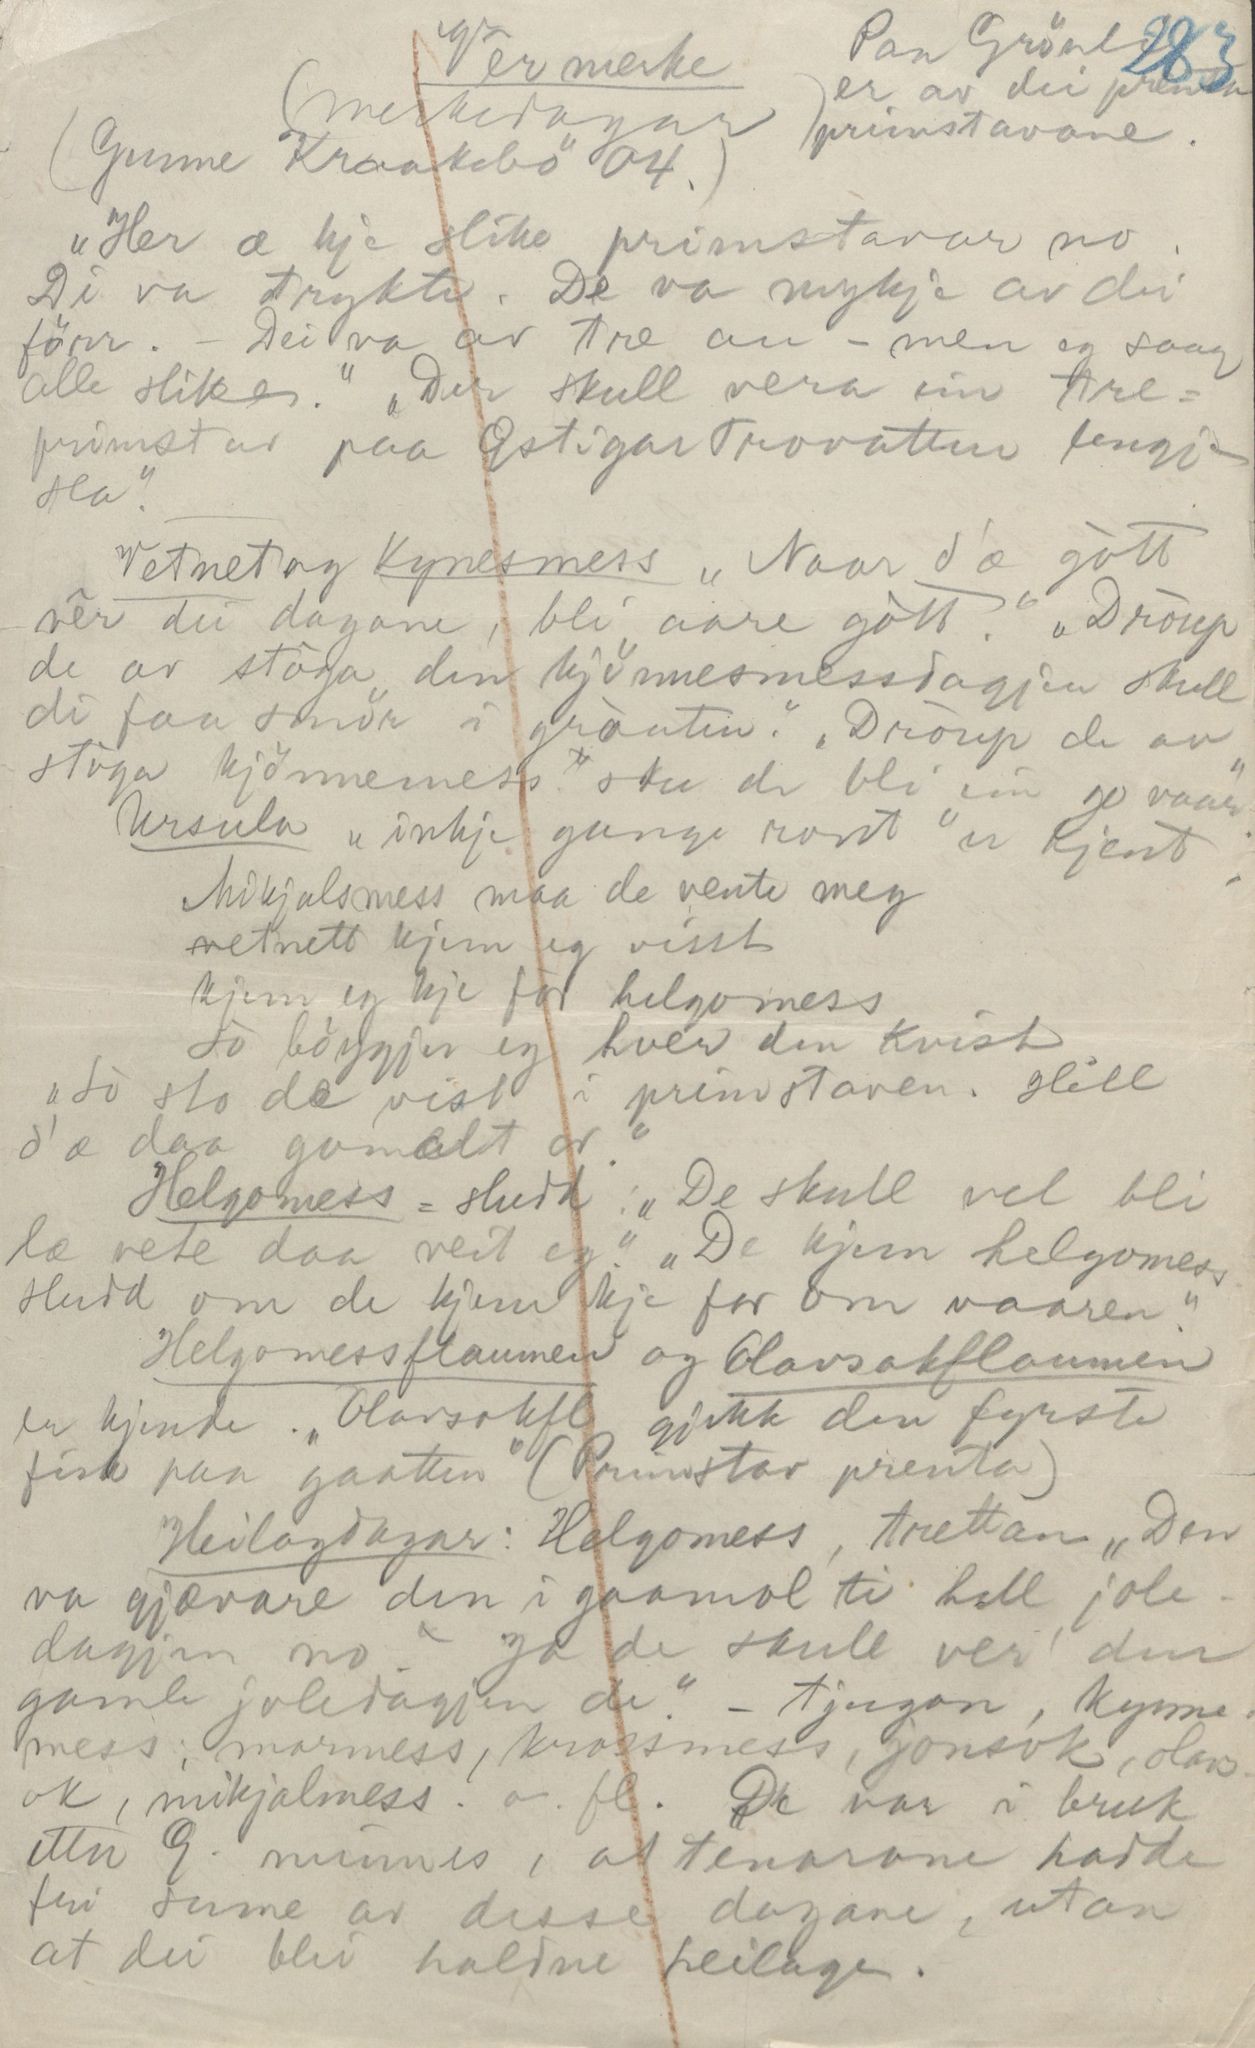 283
Vêrmerke
(merkedagar)
(Gunne Kraakebö 04.)
Paa Grönli
er av dei prenta
primstavane.
"Her æ kje slike primstavar no.
Di va trykte. De va mykje av dei
förr. – Dei va av tre au – men eg saag
alle slike." "Der skull vera ein tre=
primstav paa Ostigar Trovatten lengje
sea".
Vetnet og Kynesmess "Naar d'æ gòtt
vêr dei dagane, bli aare gòtt." "Dròup
de av stòga den kjönnesmessdagjen skull
di faa smör i gròuten." "Dròup de av
stòga kjönnemess" sku de bli ein go vaar".
Ursula "inkje gange rondt" er kjent.
Mikjalsmess maa de vente meg
vetnett kjem eg visst
kjem eg kje för helgomess
So böyggjer eg hver den Kvist
"So sto de vist i primstaven. Slill
d'æ daa gomalt or."
Helgomess = sludd: "De skull vel bli
læ vete daa veit eg." "De kjem helgomess
sludd om de kjem kje for om vaaren".
Helgomessflaumen og Olavsokflaumen
er kjende. "Olavsokfl gjekk den fyrste
fisk paa gaatten" (Primstav prenta)
Heilagdagar: Helgomess, trettan "Den
va gjævare den i gaamol ti hell jole-
dagjen no." Ja de skull ver' den
gamle joledagjen de." – Tjugon, kynne-
mess; marmess, krossmess, jonsok, olav-
ok, mikjalmess. o. fl. De var i bruk
etter G. minnes, at tenarane hadde
fri sume av desse dagane, utan
at dei blei haldne heilage.